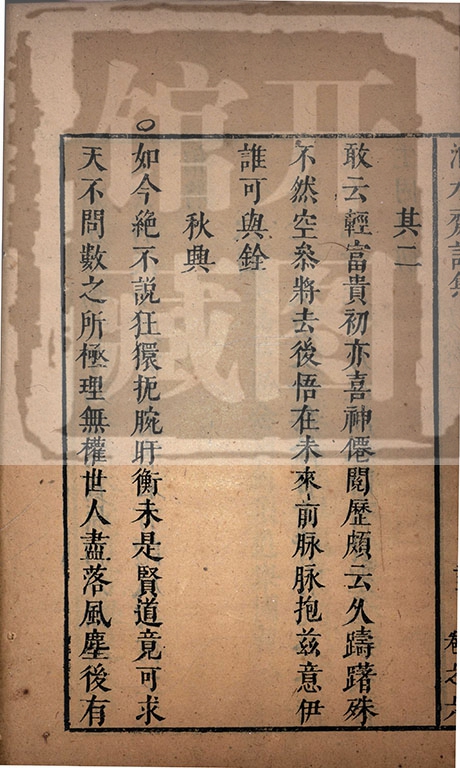 其二
敢云輕富貴初亦喜神僊閱歷頗云久躊躇殊
不然空叅將去後悟在未來前脉脉抱兹意伊
誰可與銓
秋興
如今絶不說狂獧扼腕盱衡未是賢道竟可求
天不問數之所極理無權世人盡落風塵後有
開
圖
館
藏